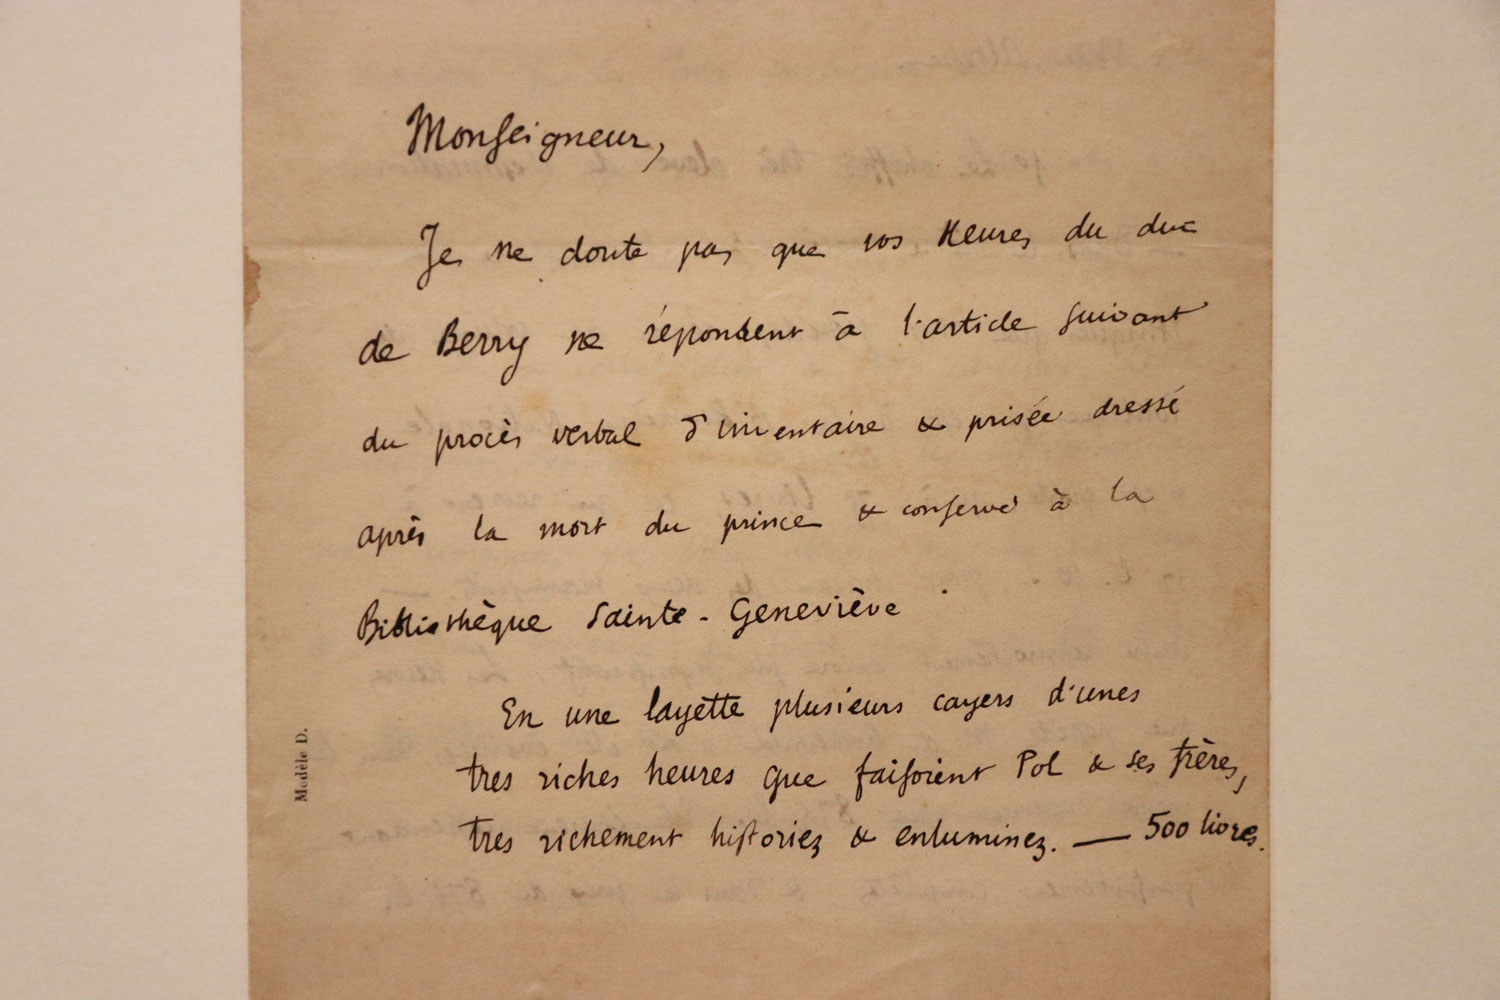 Monseigneur,
Je ne doute pas que vos Heures du duc
de Berry ne répondent à l'article suivant
du procès verbal d'inventaire & prisée dressé
après la mort du prince & conservé à la
Bibliothèque Sainte-Geneviève.
En une layette plusieurs cayers d'unes
tres riches heures que faisoient Pol & ses frères,
tres richement historiez & enluminez. — 500 livres.
Modèle D.